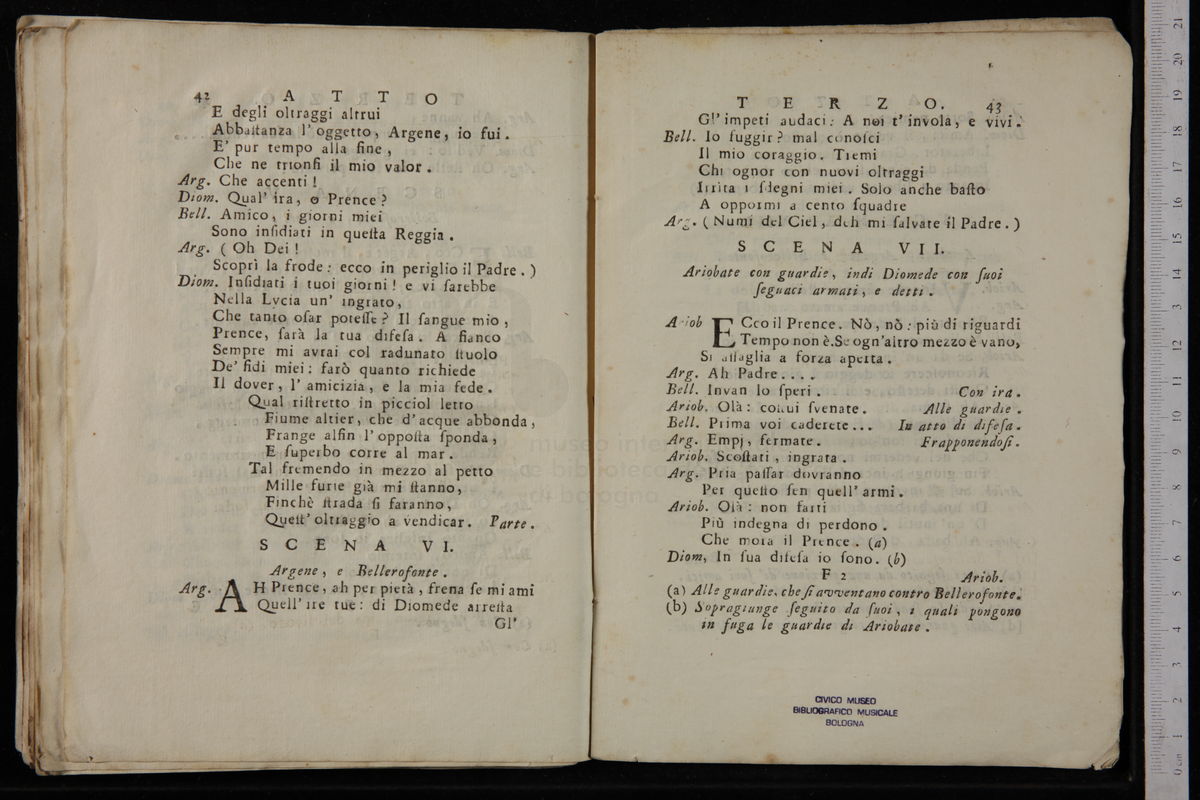 42 A T T O
E degli oltraggi altrui
Abbaſtanza l' oggetto, Argene, io fui.
E' pur tempo alla fine,
Che ne trionfi il mio valor.
Arg. Che accenti!
Diom. Qual' ira, o Prence?
Bell. Amico, i giorni miei
Sono inſidiati in queſta Reggia.
Arg. ( Oh Dei!
Scoprì la frode: ecco in periglio il Padre. )
Diom. Inſidiati i tuoi giorni! e vi ſarebbe
Nella Lycia un' ingrato,
Che tanto oſar poteſſe? Il ſangue mio,
Prence, ſarà la tua difeſa. A fianco
Sempre mi avrai col radunato ſtuolo
De' fidi miei: farò quanto richiede
Il dover, l' amicizia, e la mia fede.
Qual riſtretto in picciol letto
Fiume altier, che d' acque abbonda,
Frange alfin l' oppoſta ſponda,
E ſuperbo corre al mar.
Tal fremendo in mezzo al petto
Mille furie già mi ſtanno,
Finchè ſtrada ſi faranno,
Queſt' oltraggio a vendicar. Parte.
S C E N A VI.
Argene, e Bellerofonte.
Arg. AH Prence, ah per pietà, frena ſe mi ami
Quell' ire tue: di Diomede arreſta
Gl'
T E R Z O. 43
Gl' impeti audaci: A noi t' invola, e vivi.
Bell. Io fuggir? mal conoſci
Il mio coraggio. Tremi
Chi ognor con nuovi oltraggi
Irrita i ſdegni miei. Solo anche baſto
A oppormi a cento ſquadre
Arg. ( Numi del Ciel, deh mi ſalvate il Padre. )
S C E N A VII.
Ariobate con guardie, indi Diomede con ſuoi
ſeguaci armati, e detti.
Ariob ECco il Prence. Nò, nò: più di riguardi
Tempo non è. Se ogn' altro mezzo è vano,
Si aſſaglia a forza aperta.
Arg. Ah Padre....
Bell. Invan lo ſperi. Con ira.
Ariob. Olà: colui ſvenate. Alle guardie.
Bell. Prima voi caderete... In atto di difeſa.
Arg. Empj, fermate. Frapponendoſi.
Ariob. Scoſtati, ingrata.
Arg. Pria paſſar dovranno
Per queſto ſen quell' armi.
Ariob. Olà: non farti
Più indegna di perdono.
Che mora il Prence. (a)
Diom, In ſua difeſa io ſono. (b)
F 2 Ariob.
(a) Alle guardie, che ſi avventano contro Bellerofonte.
(b) Sopragiunge ſeguito da ſuoi, i quali pongono
in fuga le guardie di Ariobate.
CIVICO MUSEO
BIBLIOGRAFICO MUSICALE
BOLOGNA